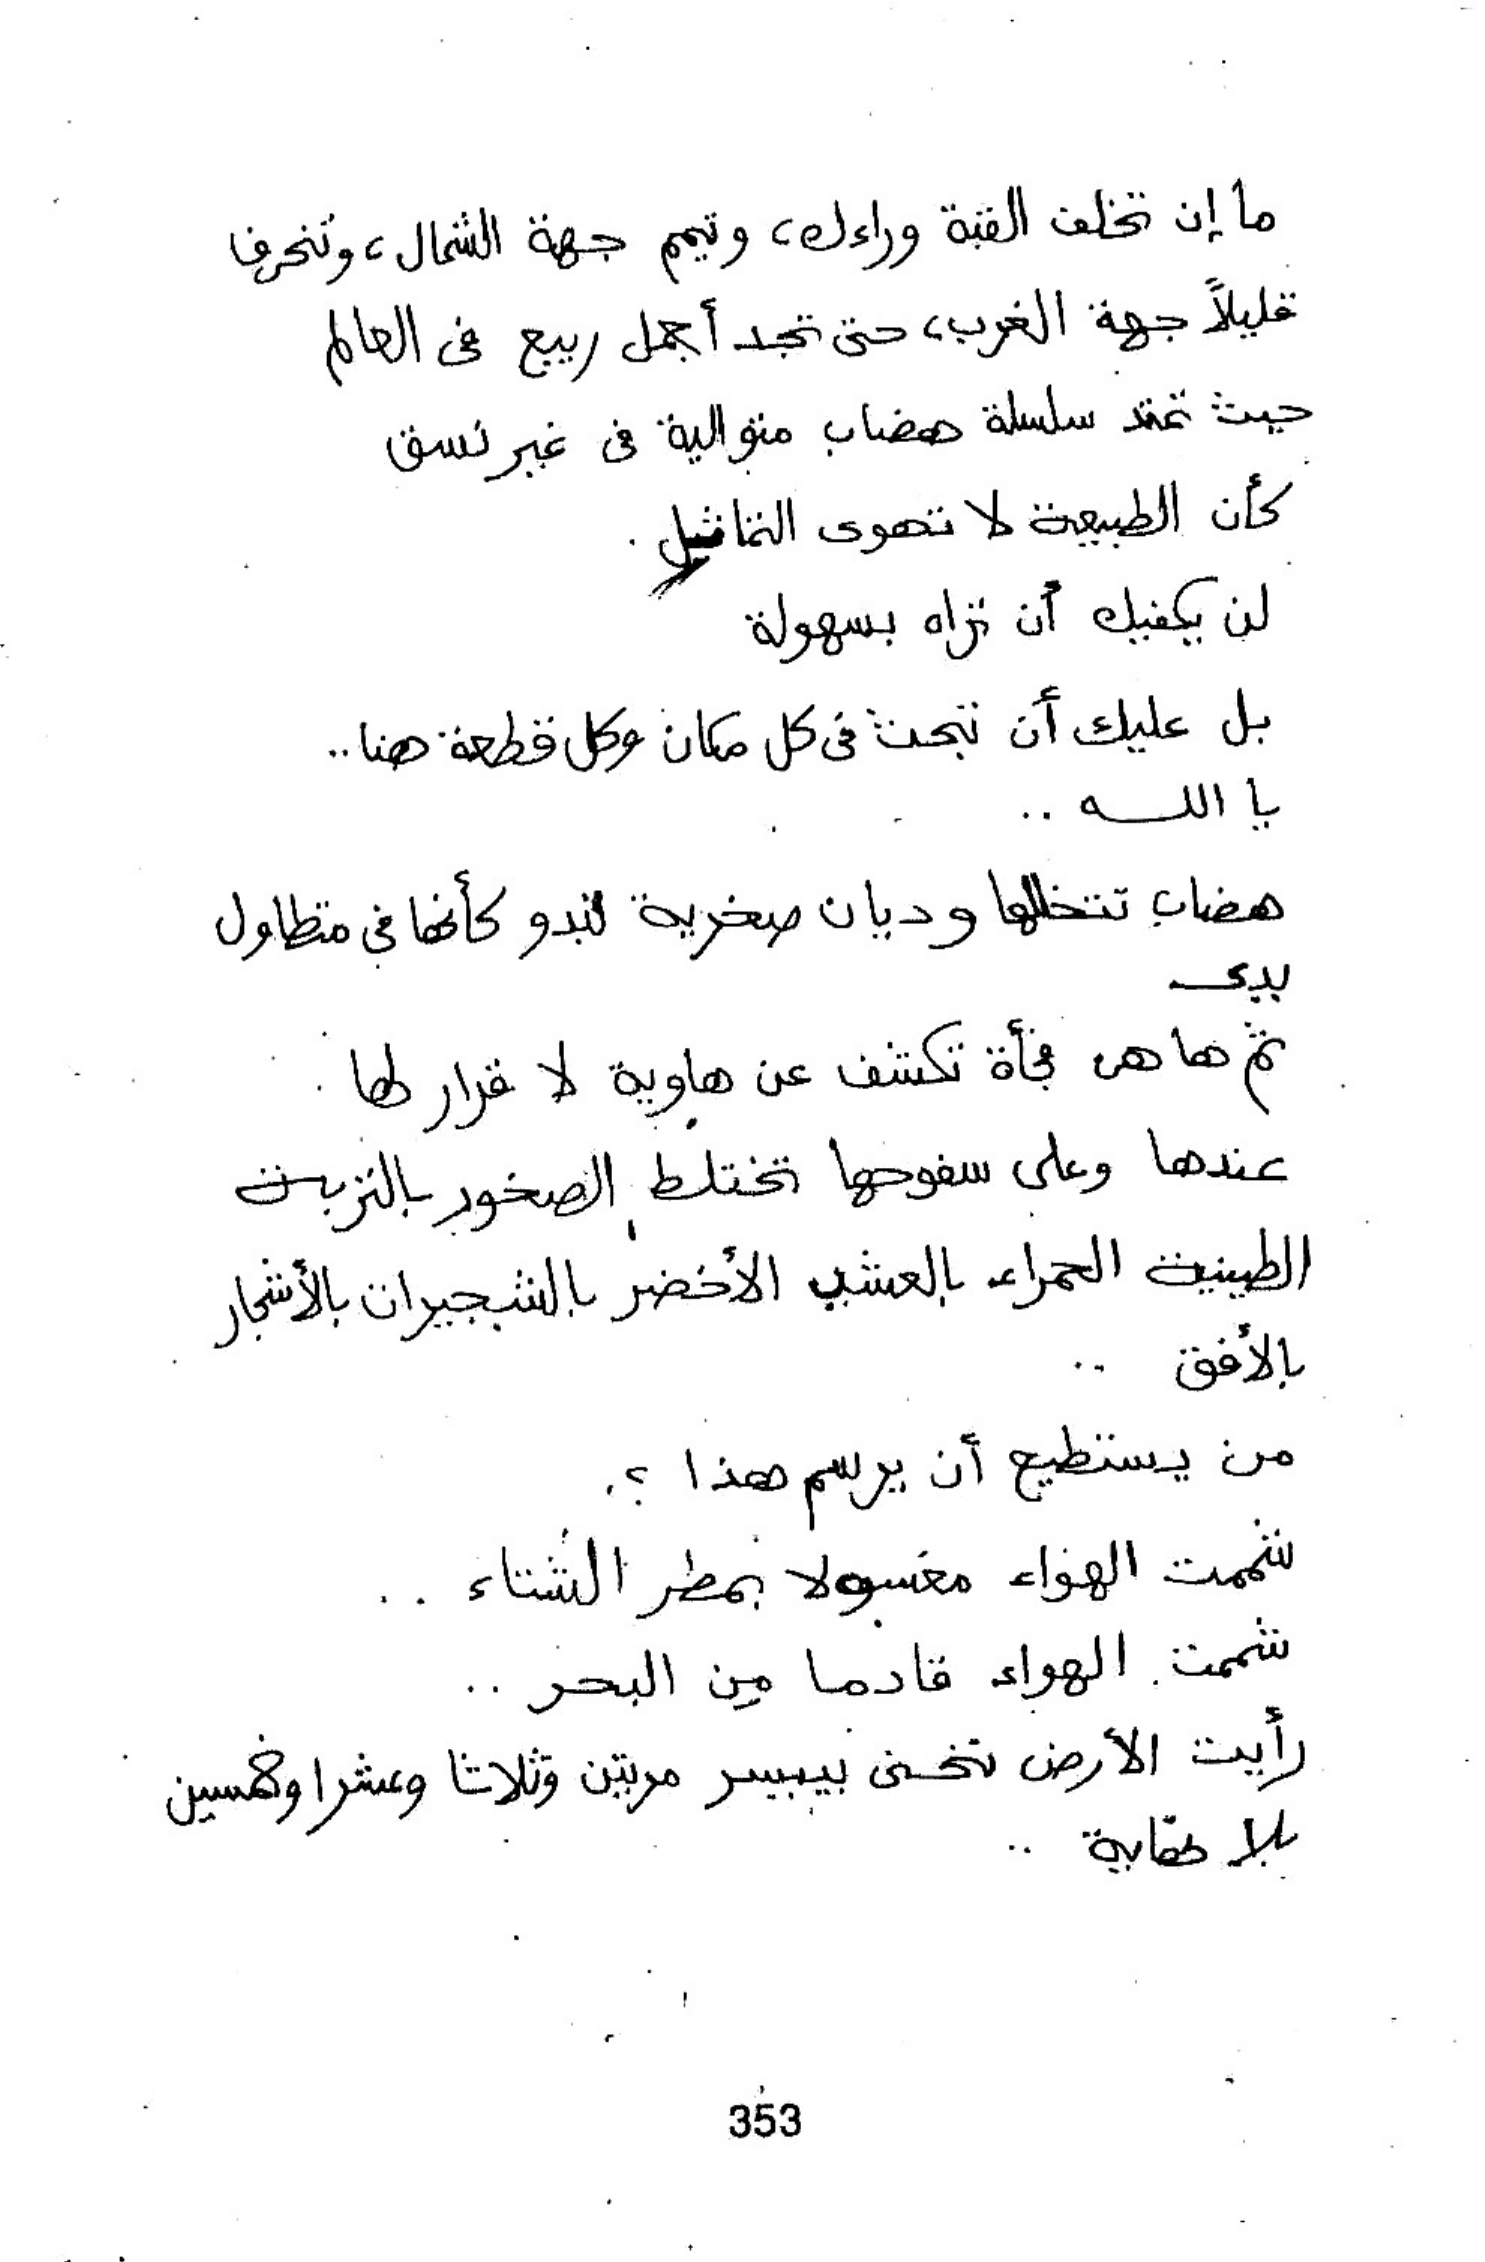 ما إن تخلف القبة وراءك، وتيمم جهة الشمال، وتنحرف
قليلاً جهة الغرب، حتى تجد أجمل ربيع فى العالم
حيث تمتد سلسلة هضاب متوالية فى غير نسق
كأن الطبيعة لا تهوى التماثيل .
لن يكفيك أن تراه بسهولة
بل عليك أن تبحث فى كل مكان وكل قطعة هنا ..
يا اللـــه ..
هضاب تتخللها وديان صخرية تبدو كأنها فى متطاول
يدى
ثم ها هى فجأة تكشف عن هاوية لا قرار لها
عندها وعلى سفوحها تختلط الصخور بالتربة
الطينية الحمراء بالعشب الأخضر بالشجيرات بالأشجار
بالأفق ..
من يستطيع أن يرسم هذا ؟.
شممت الهواء مغسولا بمطر الشتاء ..
شممت الهواء قادما من البحر ..
رأيت الأرض تنحنى بيسر مرتين وثلاثا وعشرا وخمسين
بلا نهاية ..
353